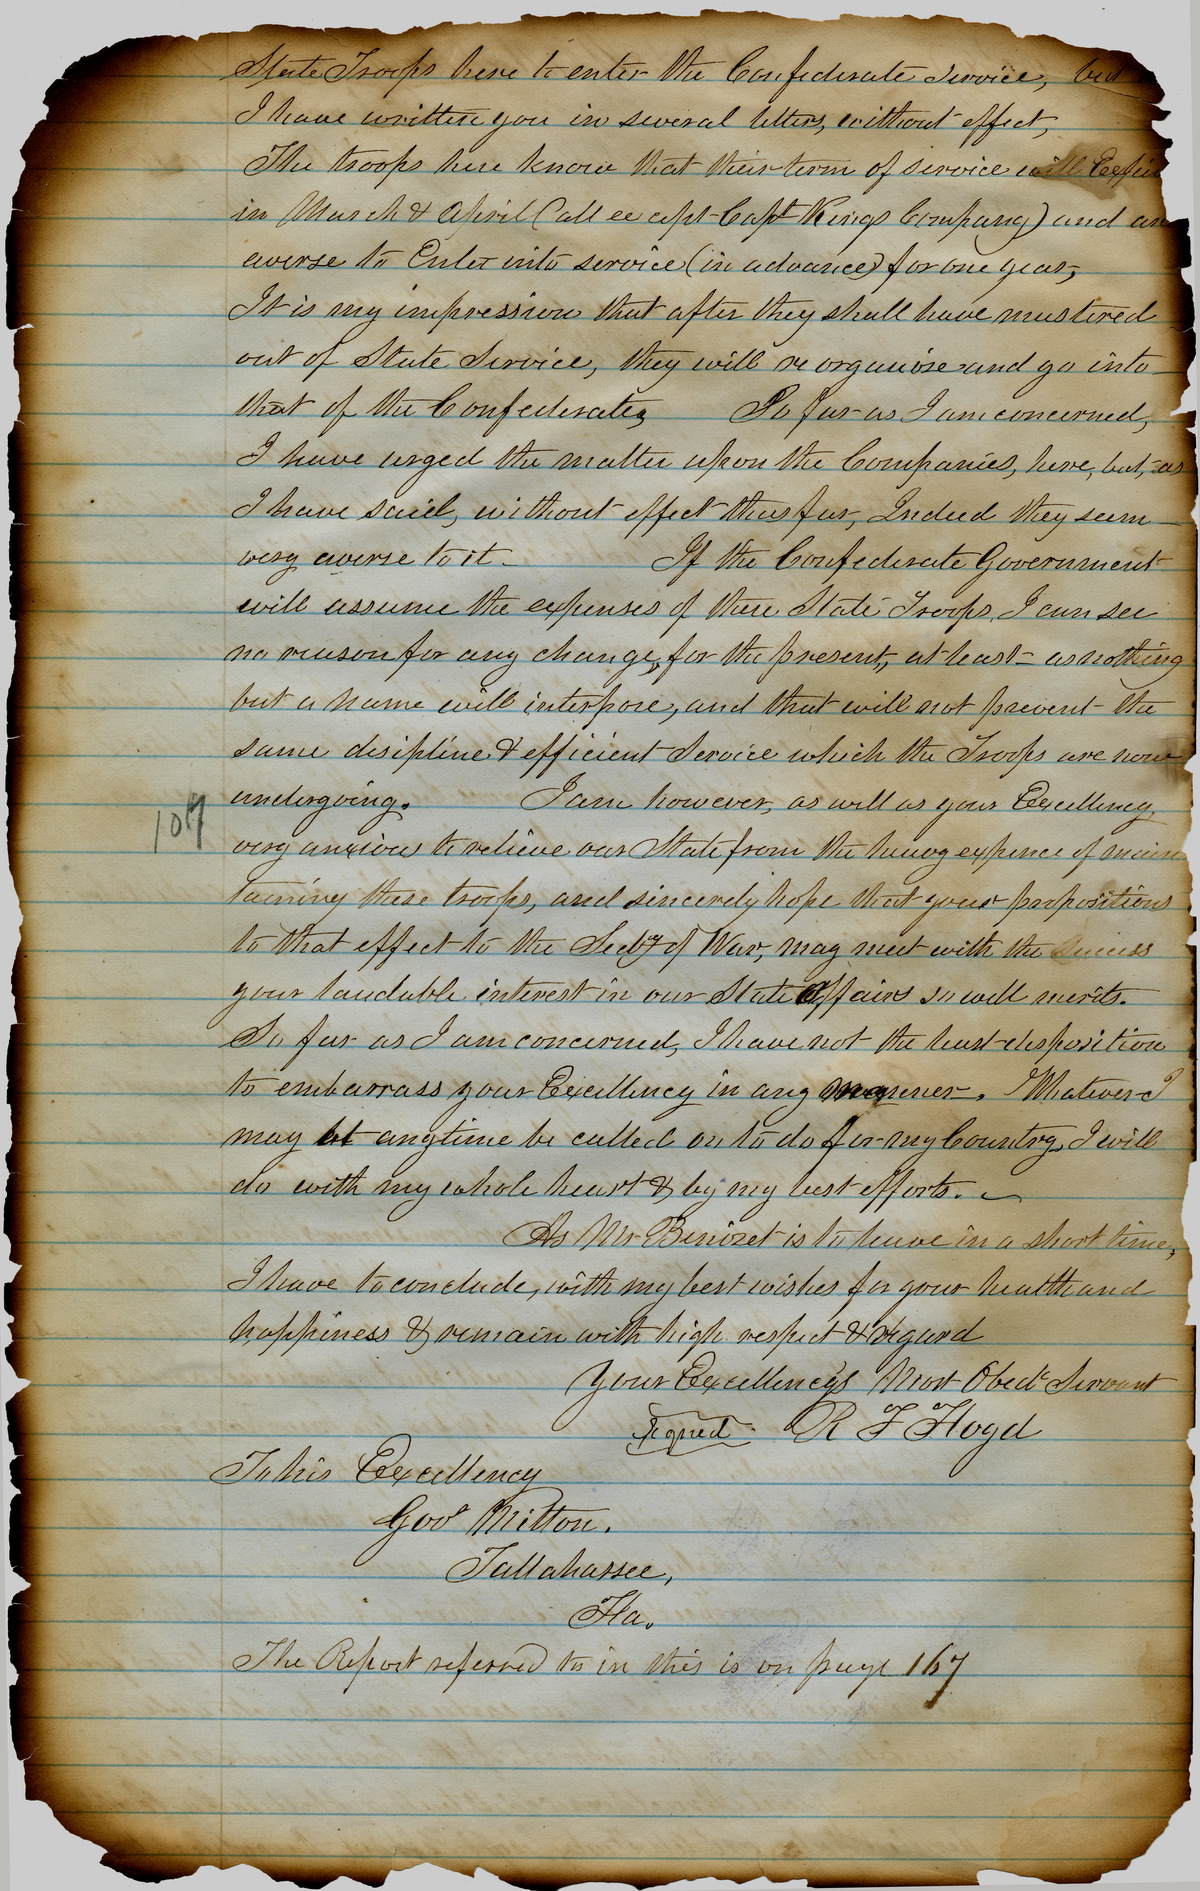 State Troops here to enter the Confederate Service, but
I have written you in several letters, without effect,
The troops here know that their term of service will Expire
in March & April (all except Capt Kings Company) and are
averse to Enter into service (in advance) for one year,
It is my impression that after they shall have mustered
out of State Service, they will reorganise and go into
that of the Confederates, So far as I am concerned,
I have urged the matter upon the Companies, here, but, as
I have said, without effect thus far, Indeed they seem
very averse to it. If the Confederate Government
will assume the expenses of these State Troops, I can see
no reason for any change, for the present, at least - as nothing
but a name will interpose, and that will not prevent the
same disipline & efficient Service which the Troops are now
undergoing. I am however, as well as your Excellency,
107
very anxious to relieve our State from the heavy expence of main
taining these troops, and sincerely hope that your propositions
to that effect to the Secty of War, may meet with the success
your laudable interest in our State Affairs so well merits.
So far as I am concerned, I have not the least disposition
to embarrass your Excellency in any manner. Whatever I
may at anytime be called on to do for my Country, I will
do with my whole heart & by my best efforts.
As Mr Benizet is to leave in a short time,
I have to conclude, with my best wishes for your health and
happiness & remain with high respect & regard
Your Excellency's Most Obedt Servant
Signed R F Floyd
To his Excellency
Govr Milton.
Tallahassee,
Fla.
The Report referred to in this is on page 167